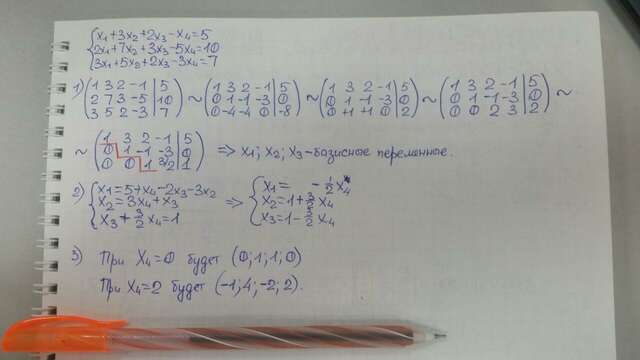 {x₁+3x₂+2x₃-x₄=5
2x₁+7x₂+3x₃-5x₄=10
3x₁+5x₂+2x₃-3x₄=7
1) (1 3 2 -1 | 5; 2 7 3 -5 | 10; 3 5 2 -3 | 7) ~ (1 3 2 -1 | 5; 0 1 -1 -3 | 0; 0 -4 -4 0 | -8) ~ (1 3 2 -1 | 5; 0 1 -1 -3 | 0; 0 +1 +1 0 | 2) ~ (1 3 2 -1 | 5; 0 1 -1 -3 | 0; 0 0 2 3 | 2) ~
~ (1 3 2 -1 | 5; 0 1 -1 -3 | 0; 0 0 1 3/2 | 1) => x₁; x₂; x₃-базисные переменные.
2) {x₁=5+x₄-2x₃-3x₂; x₂=3x₄+x₃; x₃+3/2x₄=1 => {x₁= -1/2x₄; x₂=1+3/2x₄; x₃=1-3/2x₄
3) При x₄=0 будет (0; 1; 1; 0)
При x₄=2 будет (-1; 4; -2; 2).